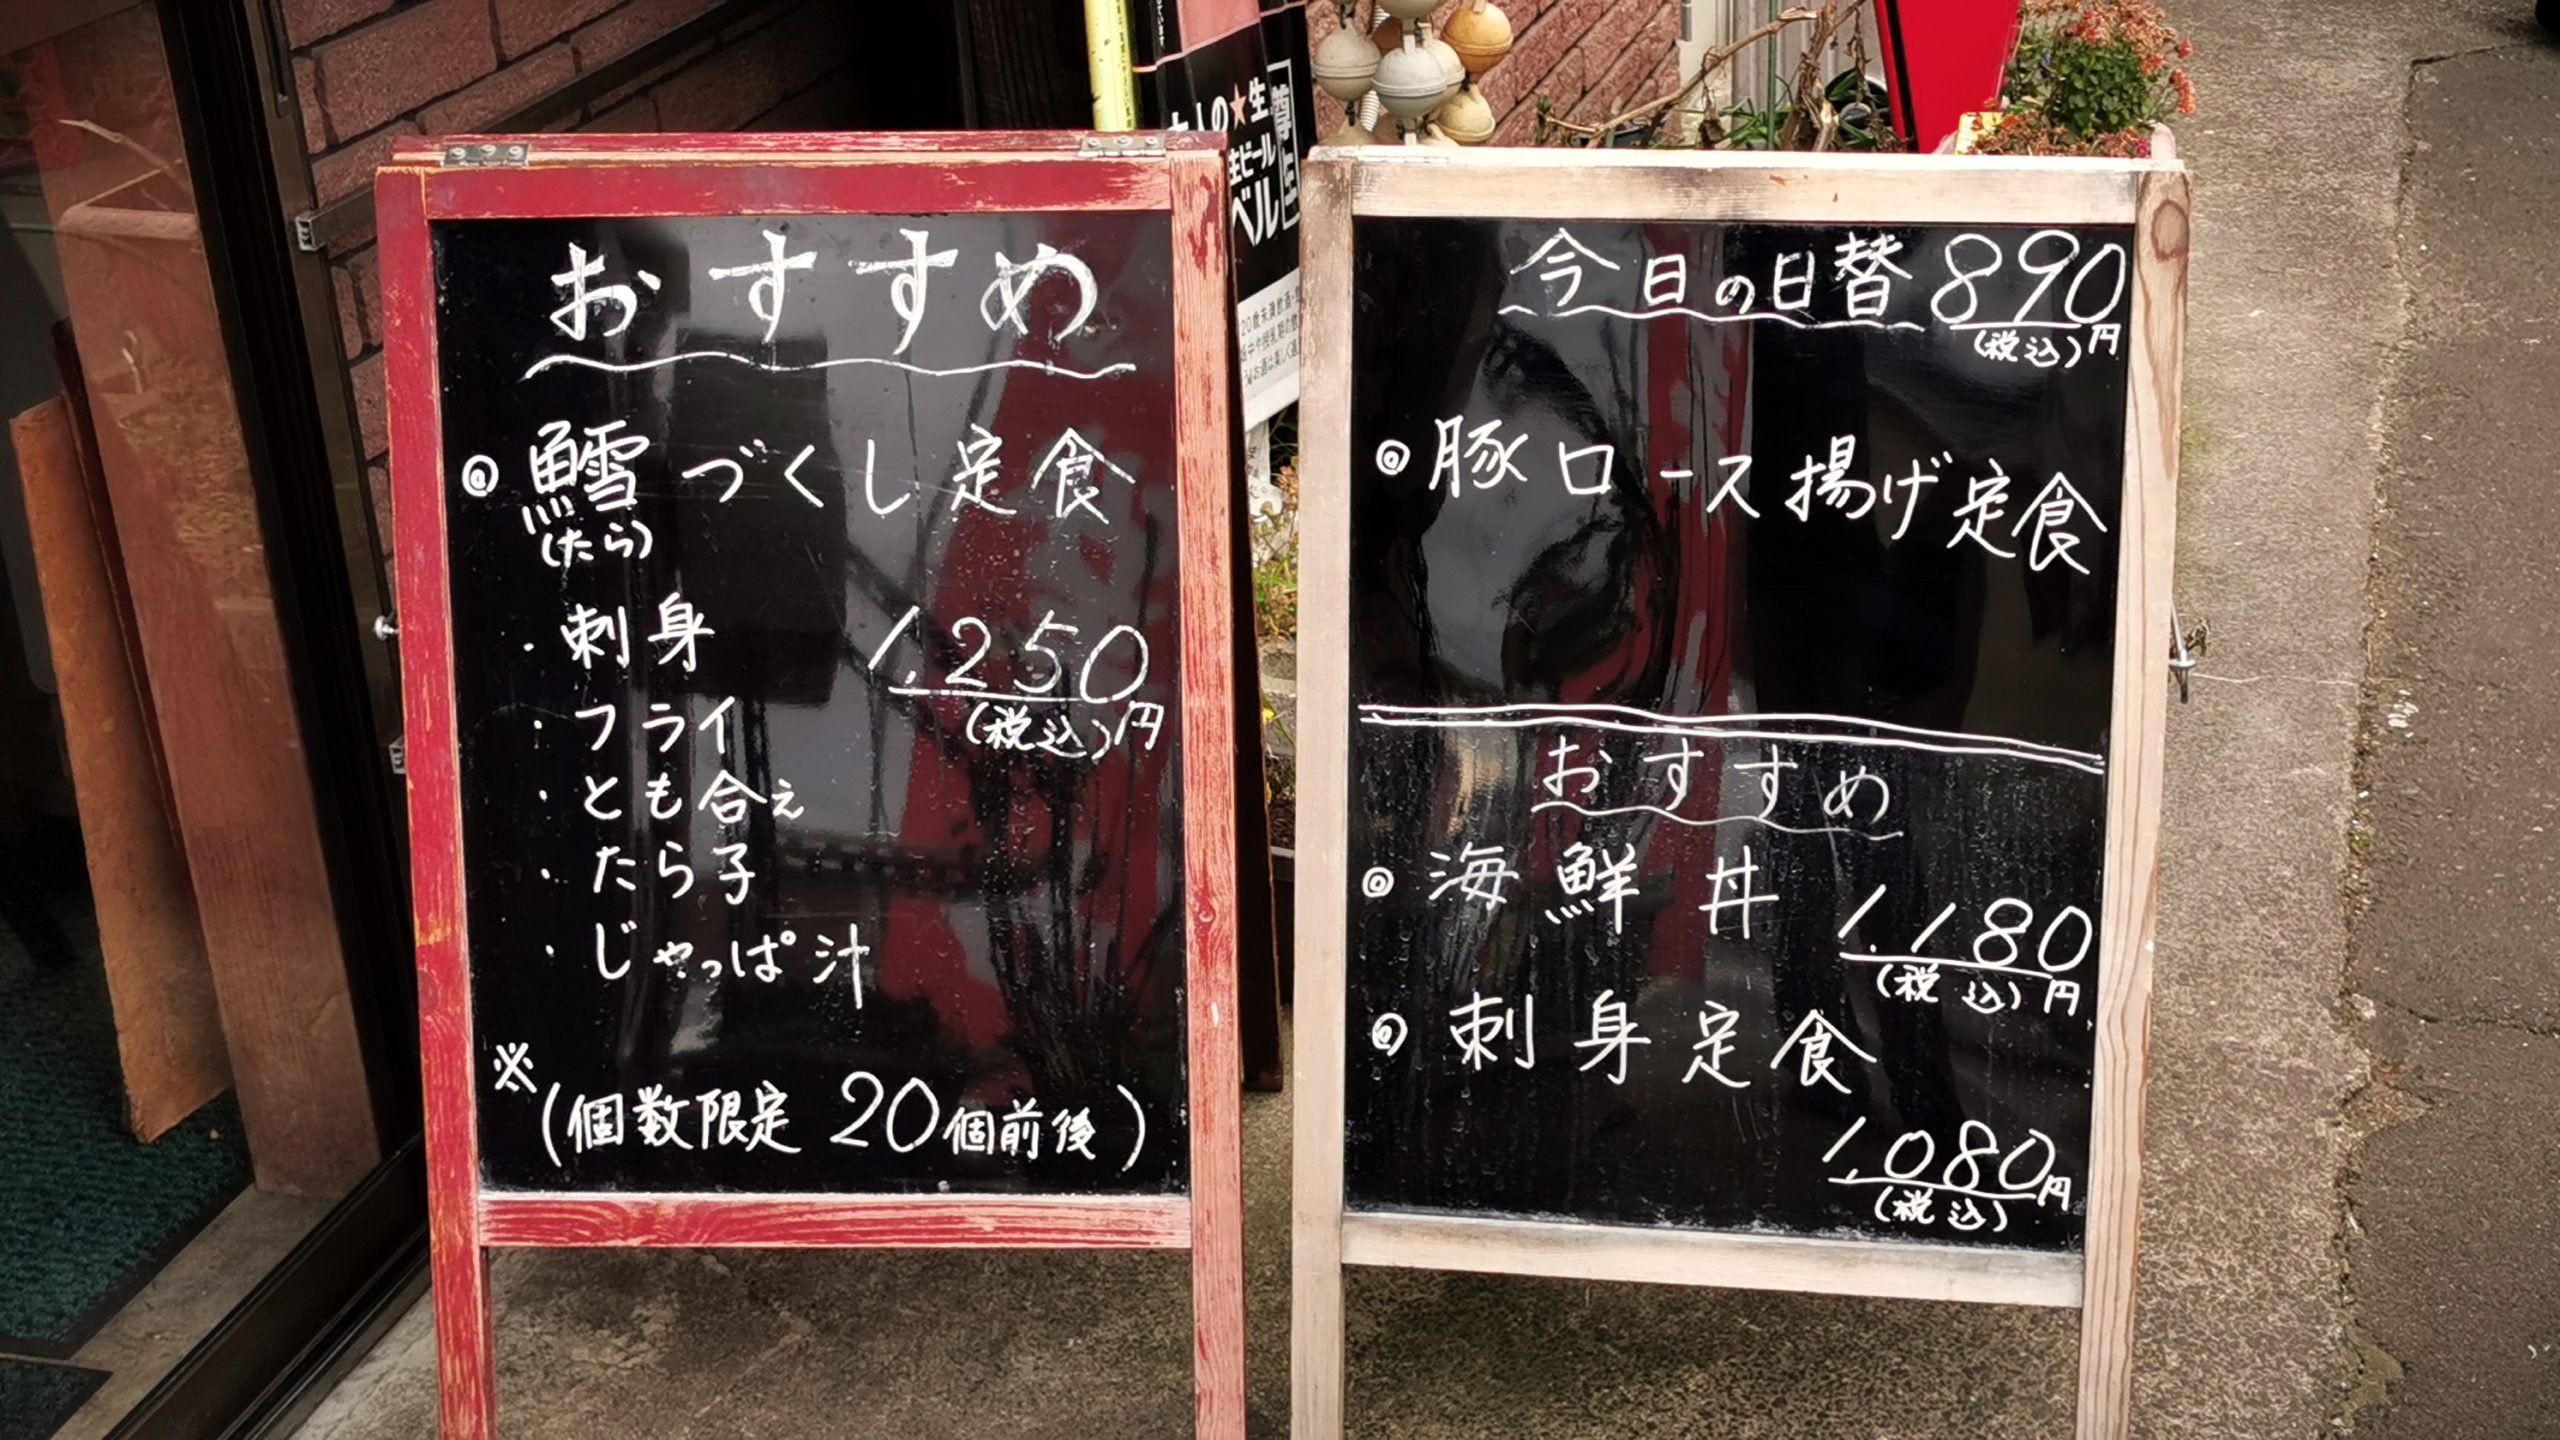 おすすめ
◎鱈づくし定食
(たら)
・刺身
1,250円
(税込)
・フライ
・とも合え
・たら子
・じゃっぱ汁
※
(個数限定 20個前後)
今日の日替 890円
(税込)
◎豚ロース揚げ定食
おすすめ
◎海鮮丼
1,180円
(税込)
◎刺身定食
1,080円
(税込)
の★生
生ビール
ベル